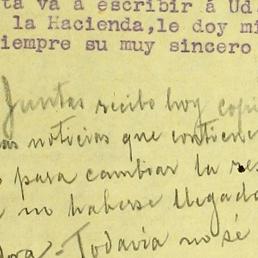 ta va á escribir á Ud.
la Hacienda, le doy mi
iempre su muy sincero
Juntas recibo hoy copi
as noticias que contiene
para cambiar la res
no haberse llegado
ora - Todavía no sé